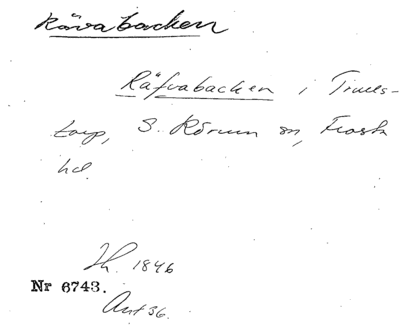 Rävabacken
Räfvabacken i Trulls-
torp, S. Rörum sn, Frosta
hd.
Th. 1846
Nr 6743.
Ant 36.